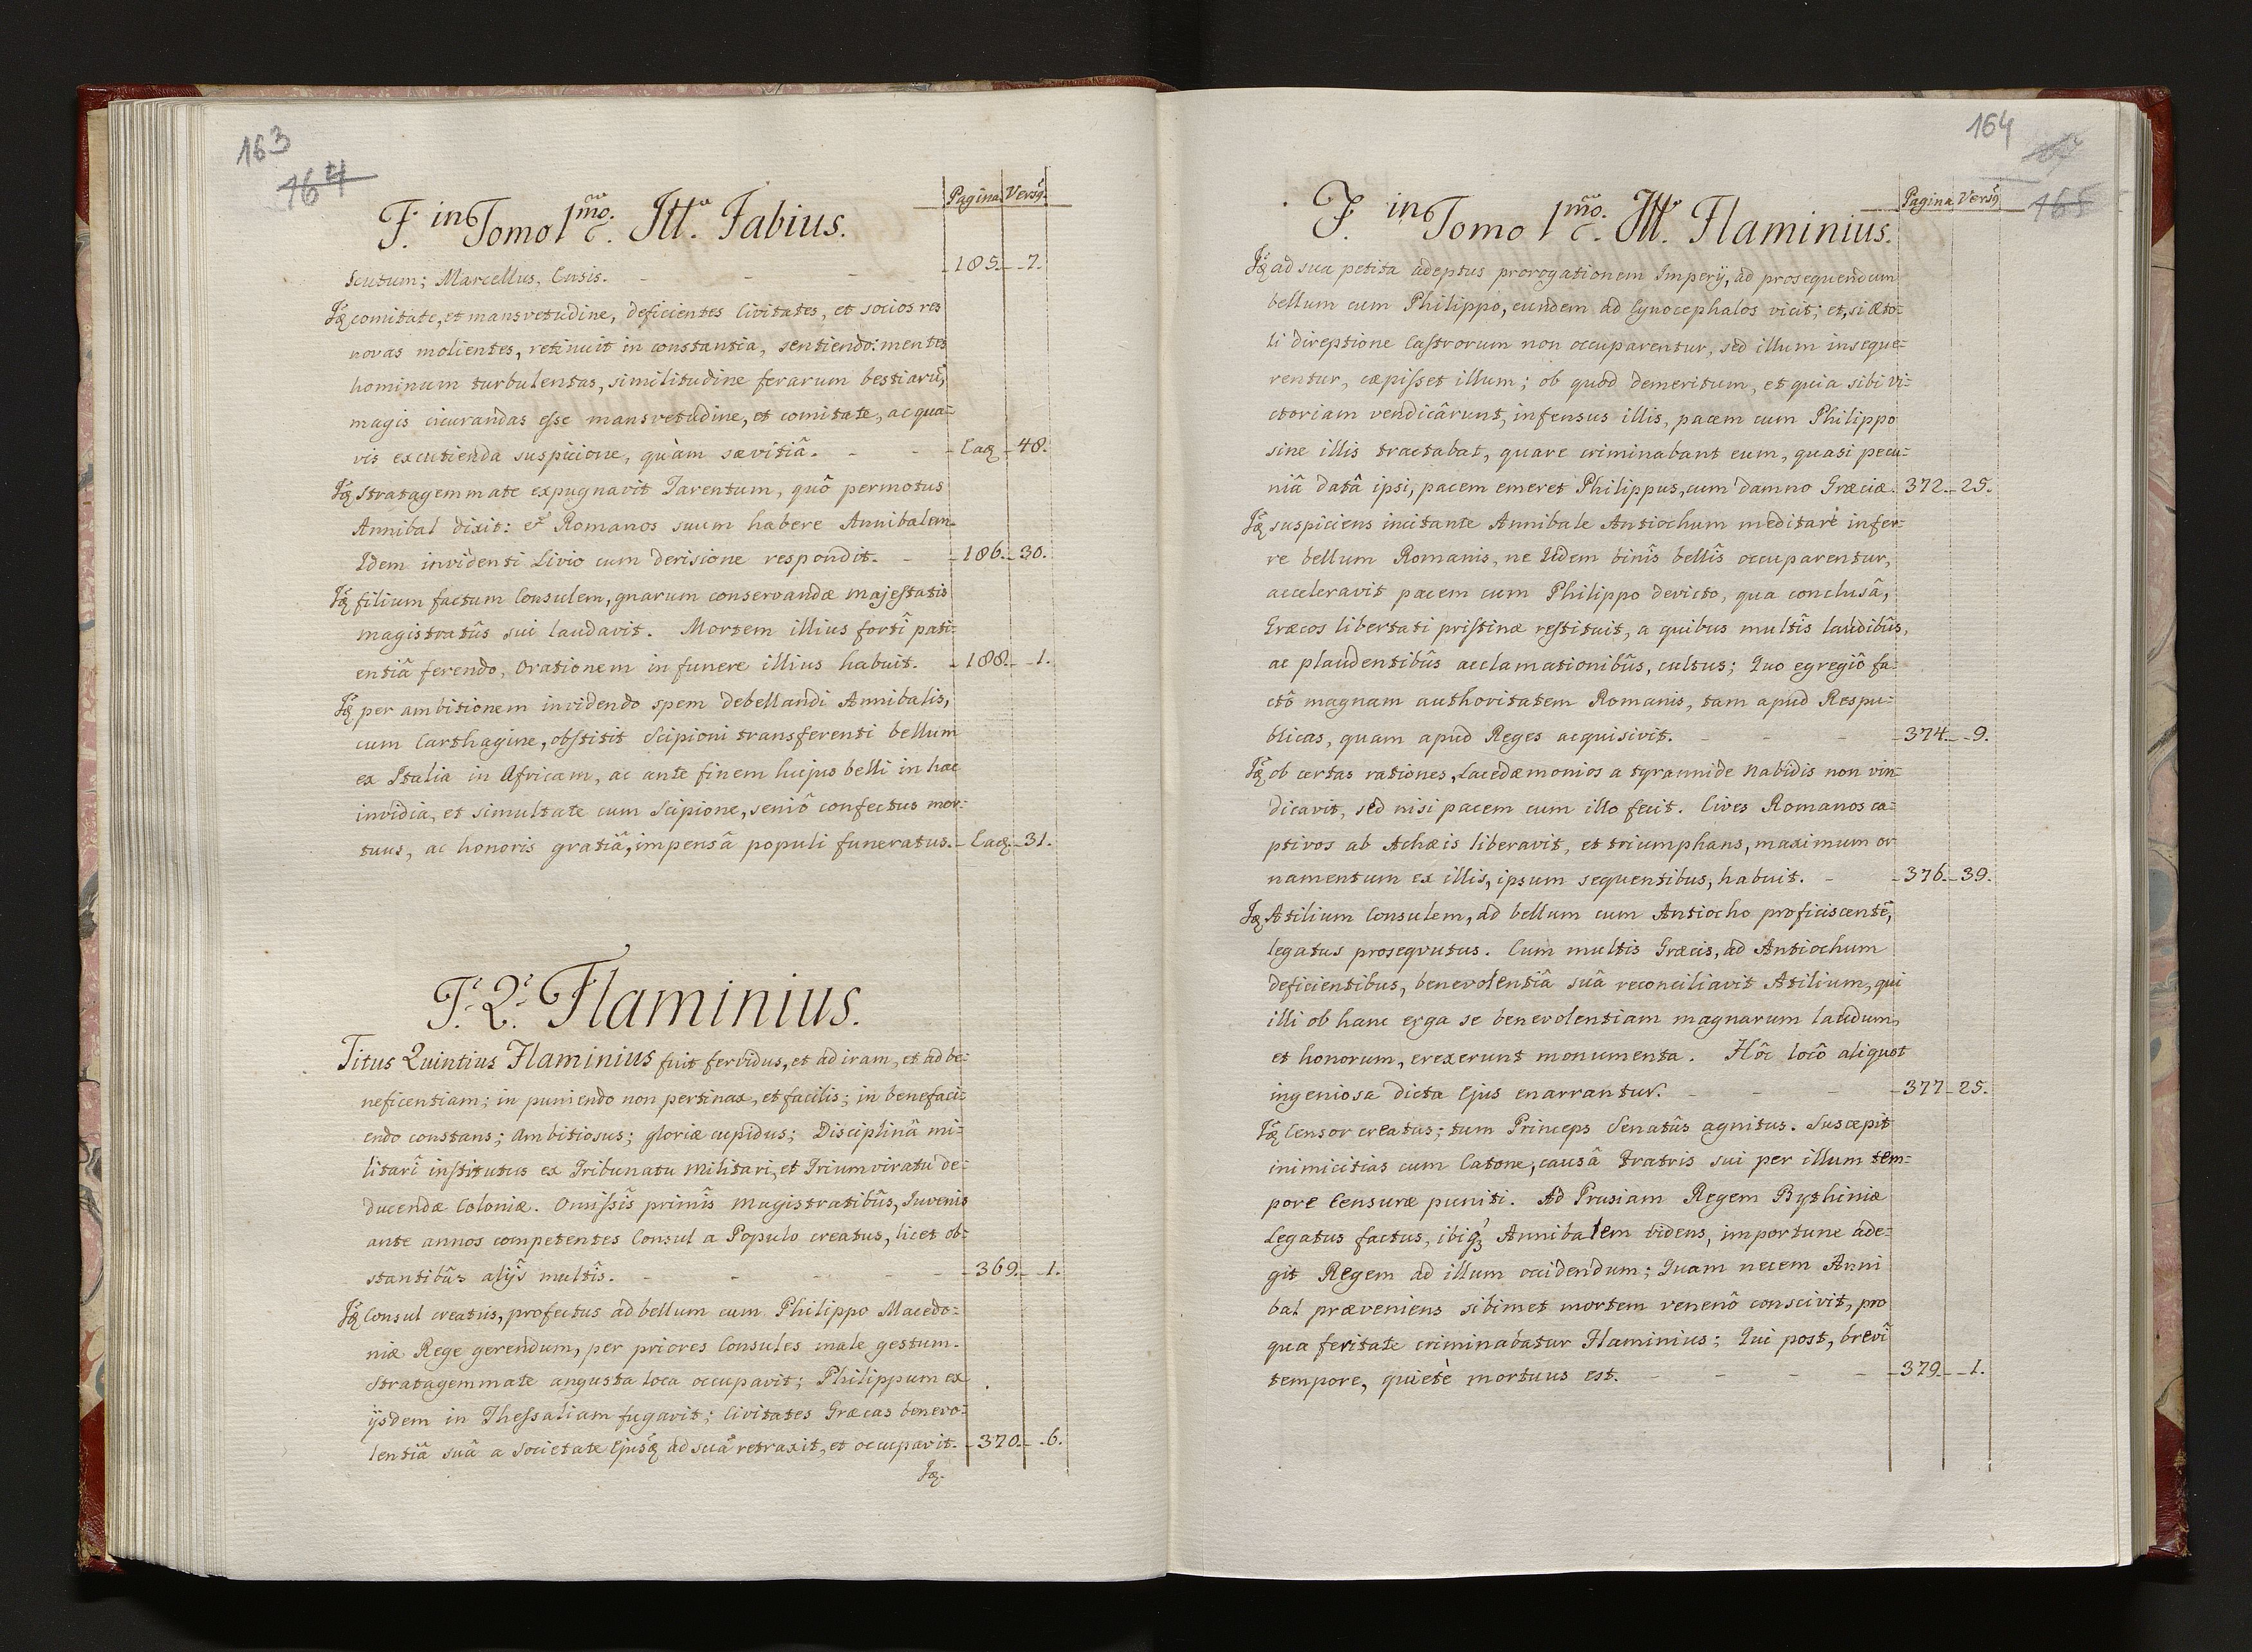 163
164
F. in Tomo 1mo. Itt. Fabius.
Pagina. Versq.
Scutum; Marcellus, Ensis. - - - 185. 7.
Itq comitate, et mansvetudine, deficientes Civitates, et socios res
novas molientes, retinuit in constantia, sentiendo: mentes
hominum turbulentas, similitudine ferarum bestiarũ,
magis cicurandas esse mansvetudine, et comitate, ac qua-
vis excutienda suspicione, quàm sævitiâ. - - Eaq. 48.
Itq Stratagemmate expugnavit Tarentum, quô permotus
Annibal dixit: et Romanos suum habere Annibalem.
Idem invidenti Livio cum derisione respondit. - 186. 30.
Itq filium factum Consulem, gnarum conservandæ majestatis
magistratûs sui laudavit. Mortem illius fortî pati-
entiâ ferendo, Orationem in funere illius habuit. 188. 1.
Itq per ambitionem invidendo spem debellandi Annibalis,
cum Carthagine, obstitit Scipioni transferenti bellum
ex Italia in Africam, ac ante finem hujus belli in hac
invidia, et simultate cum Scipione, seniô confectus mor-
tuus, ac honoris gratiâ, impensâ populi funeratus. Eaq. 31.
T. Q. Flaminius.
Titus Quintius Flaminius fuit fervidus, et ad iram, et ad be-
neficentiam; in puniendo non pertinax, et facilis; in benefaci-
endo constans; Ambitiosus; gloriæ cupidus; Disciplinâ mi-
litarî institutus ex Tribunatu Militari, et Triumviratu de-
ducendæ Coloniæ. Omissîs primîs Magistratibûs, Juvenis
ante annos competentes Consul a Populo creatus, licet ob-
stantibûs alijs multîs. - - - - - 369. 1.
Itq Consul creatus, profectus ad bellum cum Philippo Macedo-
niæ Rege gerendum, per priores Consules male gestum.
Stratagemmate angusta loca occupavit; Philippum ex
ijsdem in Thessaliam fugavit; Civitates Græcas benevo-
lentiâ suâ a societate Ejusq ad suã retraxit, et occupavit. 370. 6.
Itq.
164
165
F. in Tomo 1mo. Itt. Flaminius.
Pagina Versq
Itq ad sua petita adeptus prorogationem Imperij, ad prosequendum
bellum cum Philippo, eundem ad Cynocephalos vicit; et, si Æto-
li direptione Castrorum non occuparentur, sed illum inseque-
rentur, cæpisset illum; ob quod demeritum, et quia sibi vi-
ctoriam vendicârunt, infensus illis, pacem cum Philippo
sine illis tractabat, quare criminabant eum, quasi pecu-
niâ datâ ipsi, pacem emeret Philippus, cum damno Græciæ. 372. 25.
Itq suspiciens incitante Annibale Antiochum meditarè infer-
re bellum Romanis, ne Iidem binîs bellîs occuparentur,
acceleravit pacem cum Philippo devicto, qua conclusâ,
Græcos libertati pristinæ restituit, a quibus multîs laudibûs,
ac plaudentibûs acclamationibûs, cultus; Quo egregiô fa-
ctô magnam authoritatem Romanis, tam apud Respu-
blicas, quam apud Reges acquisivit. - - - 374. 9.
Itq ob certas rationes, Lacedæmonios a tyrannide Nabidis non vin-
dicavit, sed nisi pacem cum illo fecit. Cives Romanos ca-
ptivos ab Achæis liberavit, et triumphans, maximum or
namentum ex illis, ipsum sequentibus, habuit. - 376. 39.
Itq Atilium Consulem, ad bellum cum Antiocho proficiscentẽ,
legatus proseqvutus. Cum multis Græcis, ad Antiochum
deficientibus, benevolentiâ suâ reconciliavit Atilium, qui
illi ob hanc erga se benevolentiam magnarum laudum,
et honorum, erexerunt monumenta. Hôc locô aliquot
ingeniosa dicta Ejus enarrantur. - - - 377 25.
Itq Censor creatus; tum Princeps Senatûs agnitus. Suscæpit
inimicitias cum Catone, causâ Fratris sui per illum tem-
pore Censuræ puniti. Ad Prusiam Regem Bythiniæ
Legatus factus, ibiq3 Annibalem videns, importune ade-
git Regem ad illum occidendum; Quam necem Anni
bal præveniens sibimet mortem venenô conscivit, pro
qua feritate criminabatur Flaminius; Qui post, brevî
tempore, quietè mortuus est. - - - - 379. 1.